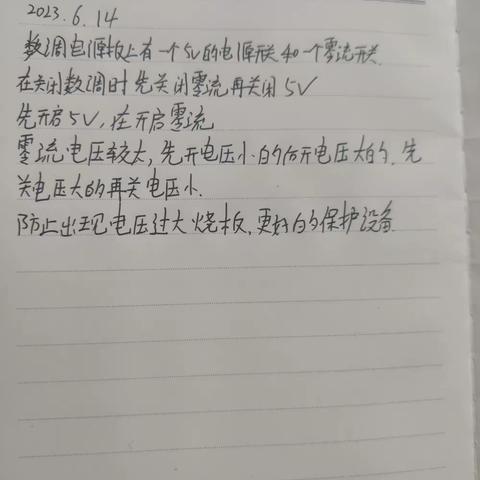 2023.6.14
数调电源板上有一个5v的电源开关和一个零流开关.
在关闭数调时先关闭零流再关闭5V
先开启5V,在开启零流
零流电压较大,先开电压小的后开电压大的,先
关电压大的再关电压小.
防止出现电压过大烧板,更好的保护设备.